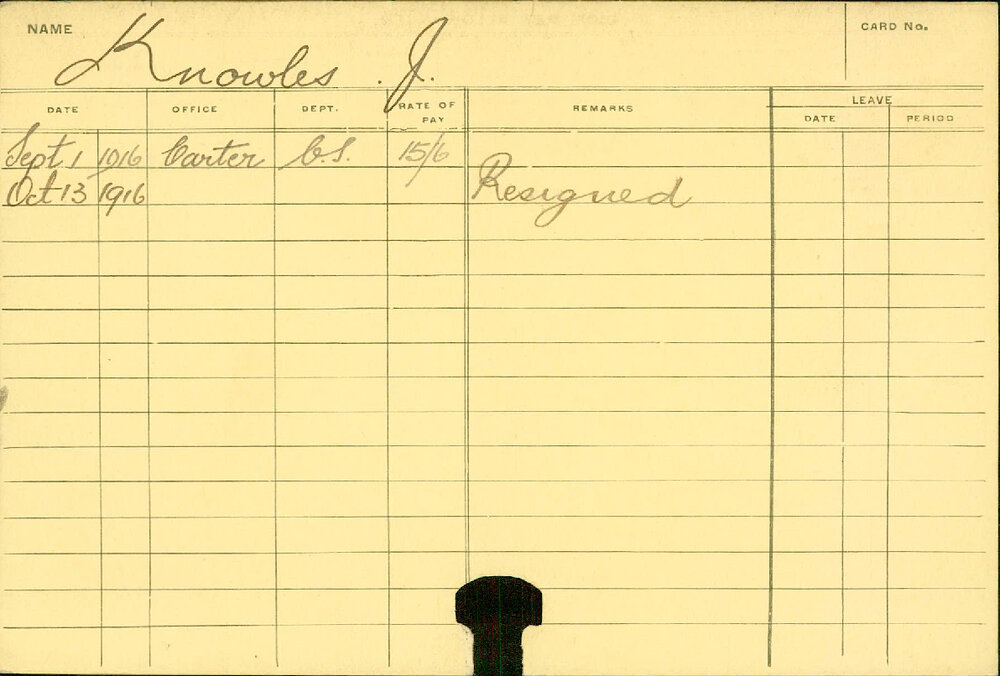 NAME Knowles . J. CARD No.
DATE OFFICE DEPT. RATE OF PAY REMARKS LEAVE
DATE PERIOD
Sept 1 1916 Carter C.S. 15/6
Oct 13 1916 Resigned